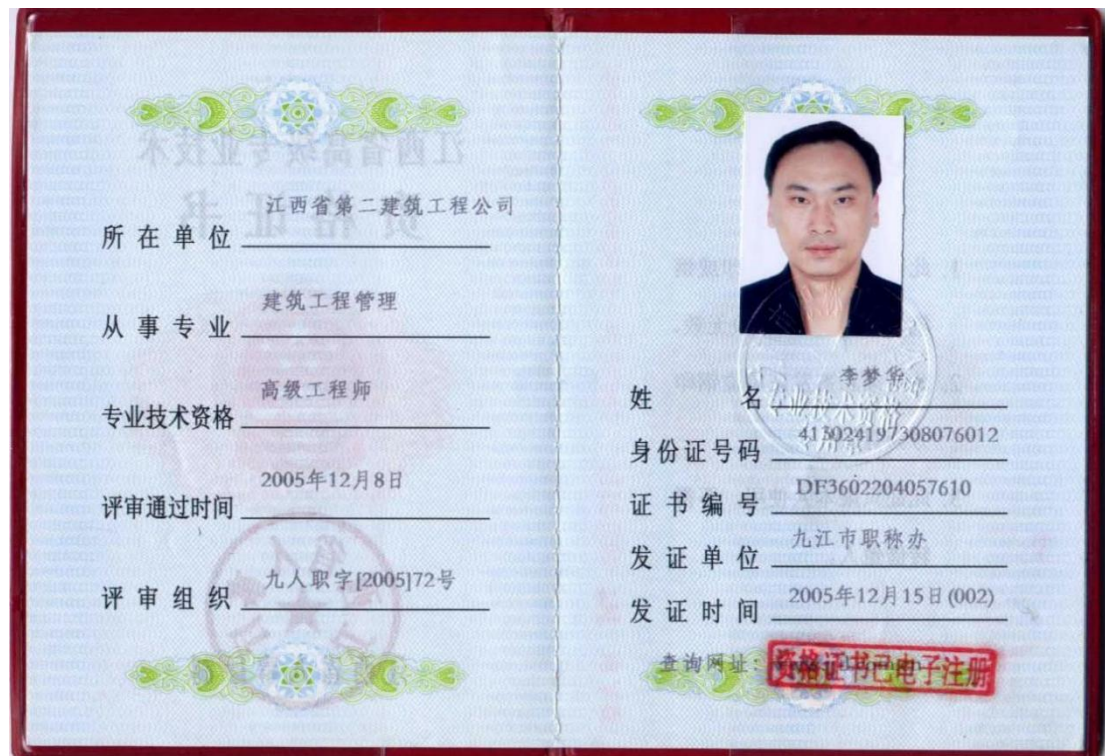 所在单位 江西省第二建筑工程公司
从事专业 建筑工程管理
专业技术资格 高级工程师
评审通过时间 2005年12月8日
评审组织 九人职字[2005]72号
姓名 李梦华
专业技术资格
专用章
身份证号码 413024197308076012
证书编号 DF3602204057610
发证单位 九江市职称办
发证时间 2005年12月15日(002)
查询网址:
资格证书已电子注册